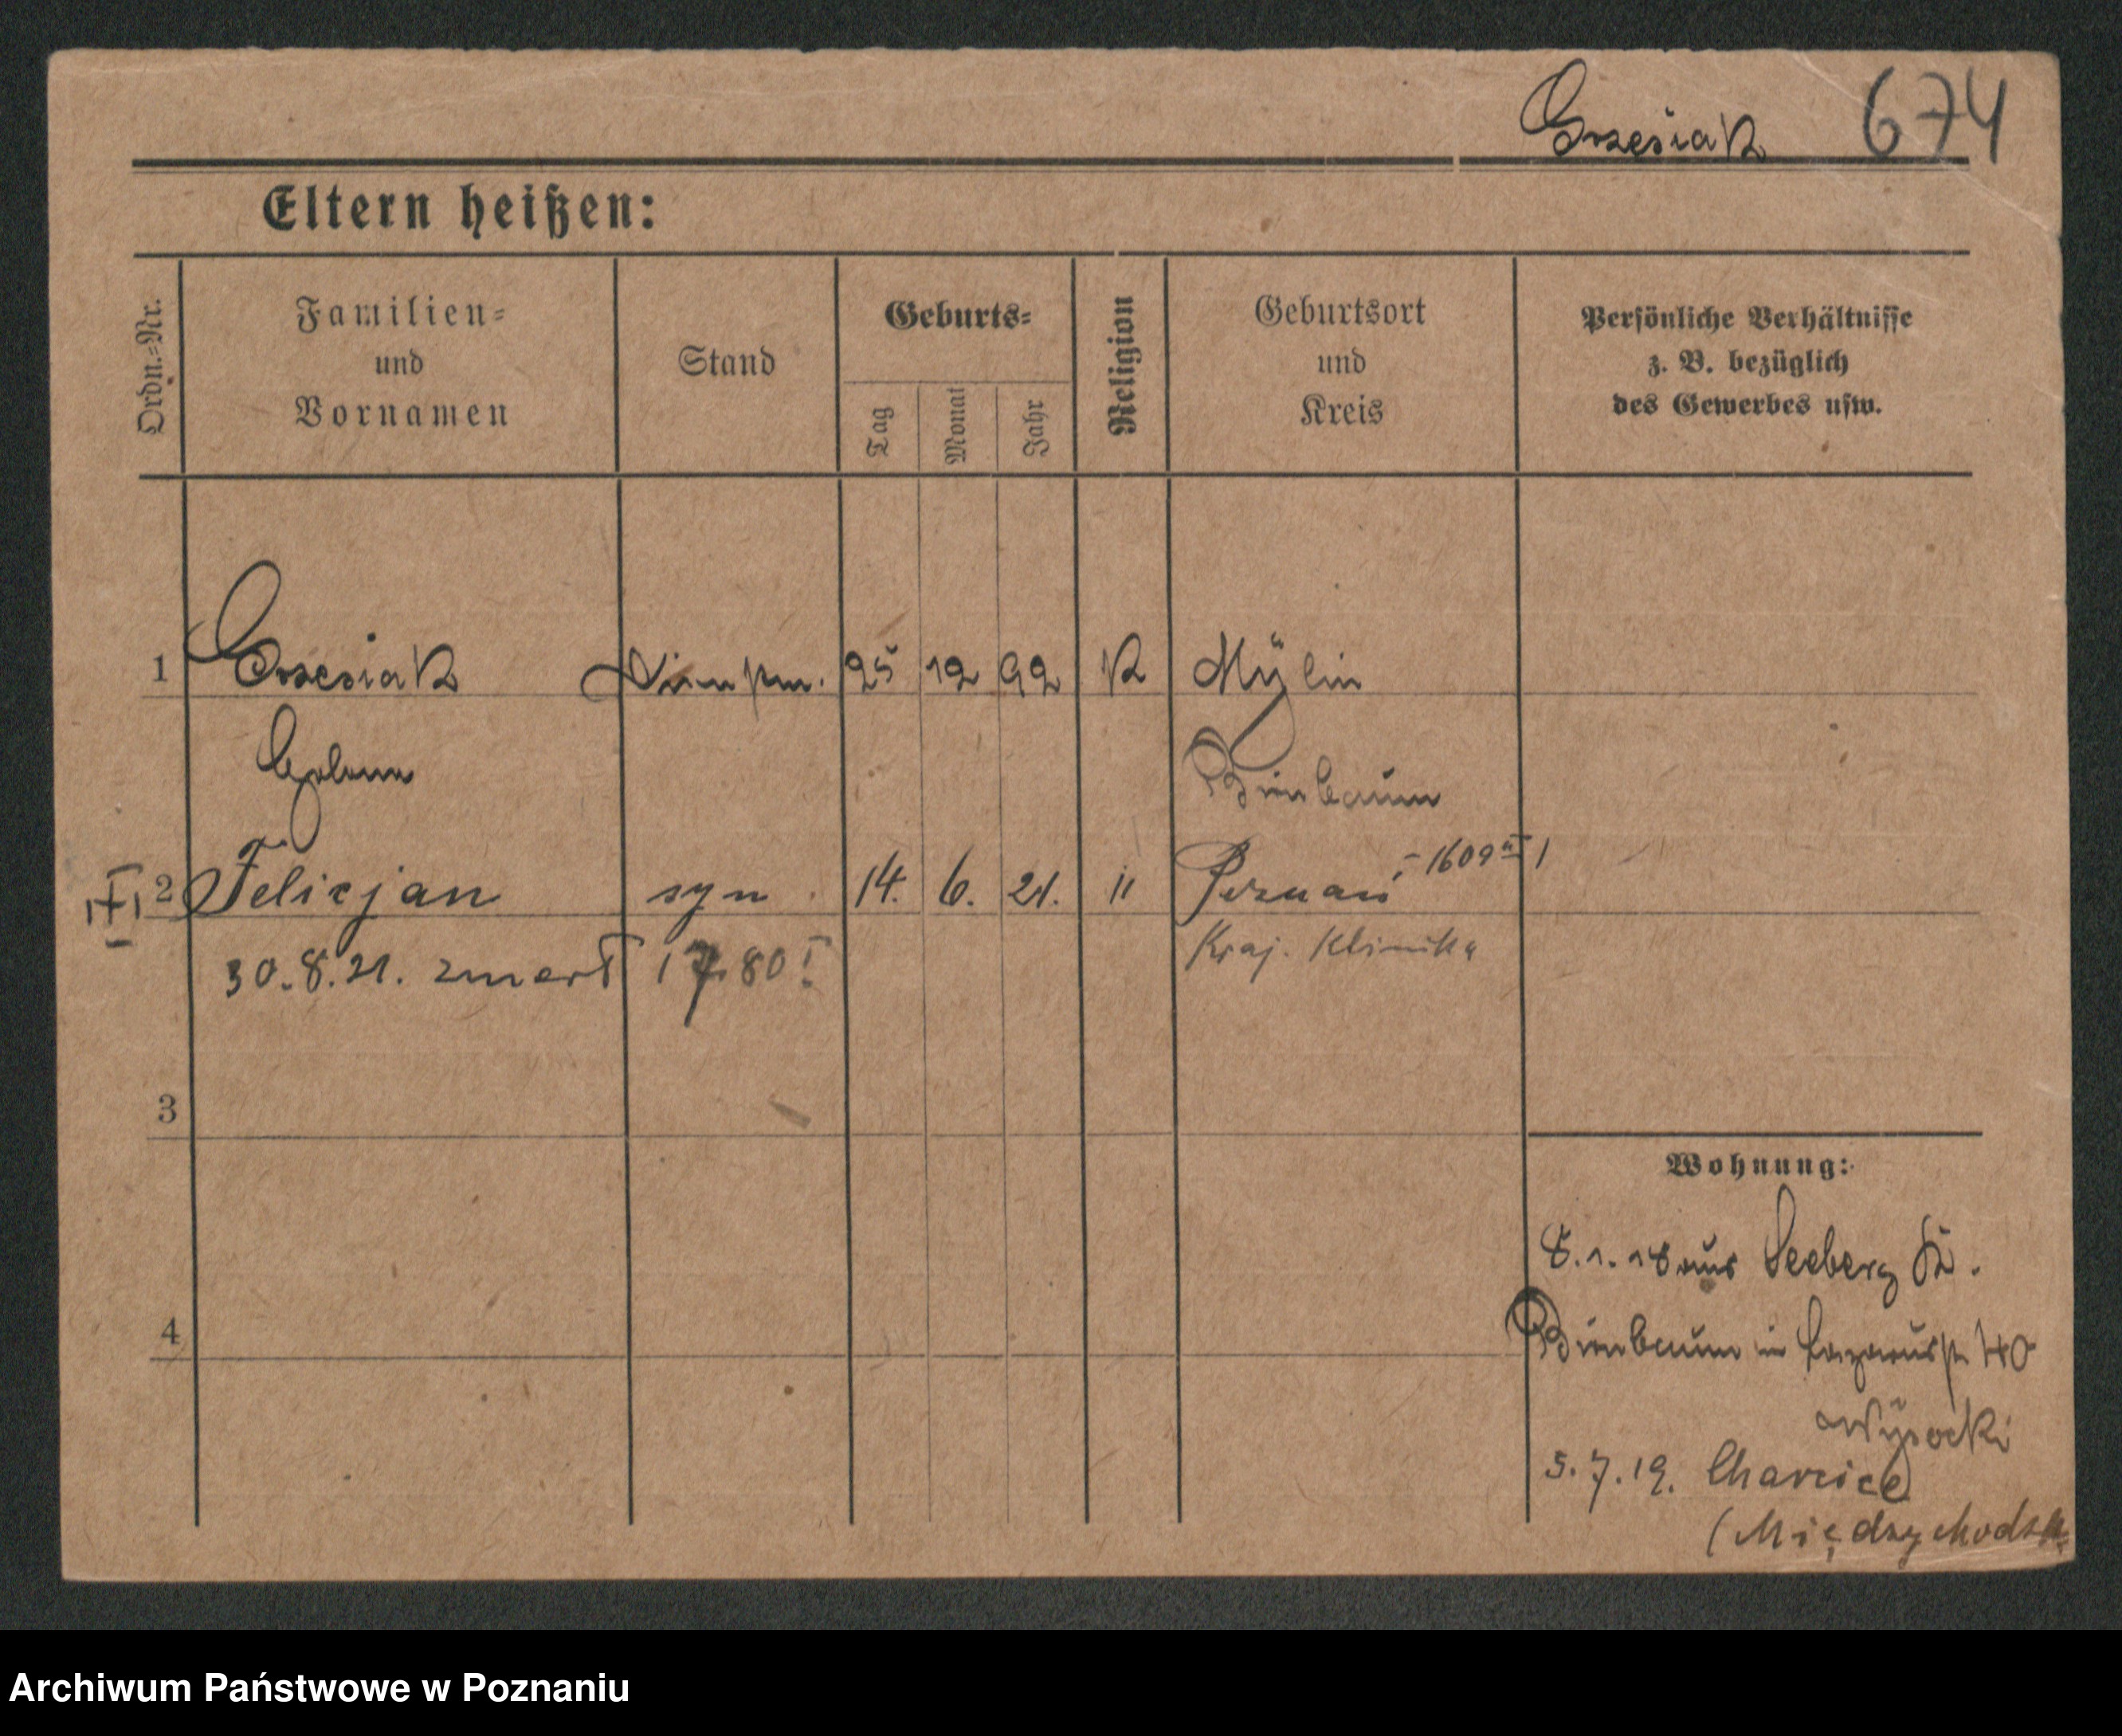 Grzesiak 674
Eltern heißen:
Ordn.=Nr.
Familien=
und
Vornamen
Stand
Geburts=
Tag
Monat
Jahr
Religion
Geburtsort
und
Kreis
Persönliche Verhältnisse
z. B. bezüglich
des Gewerbes usw.
1 Grzesiak 25 12 92 K Mylin
Birnbaum
2 Felicjan syn 14. 6. 21. " Poznań - 1609 II/
30.8.21. zmarł 1780 I
Kraj. Klinika
3
Wohnung:
8.1.18 aus Seeberg Kr.
4
Birnbaum in Lazarusstr 40
Wysocki
5.7.19. Charcice
(Międzychodzk
Archiwum Państwowe w Poznaniu